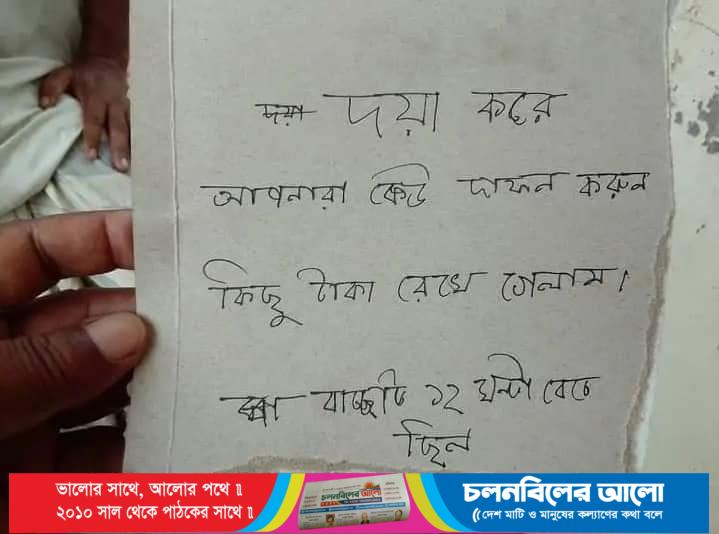 দয়া করে
আপনারা কেউ দাফন করুন
কিছু টাকা রেখে গেলাম।
বাচ্চাটি ১২ ঘন্টা বেচে
ছিল
ভালোর সাথে, আলোর পথে ॥
২০১০ সাল থেকে পাঠকের সাথে ॥
চলনবিলের আলো
চলনবিলের আলো
((দেশ মাটি ও মানুষের কল্যাণের কথা বলে